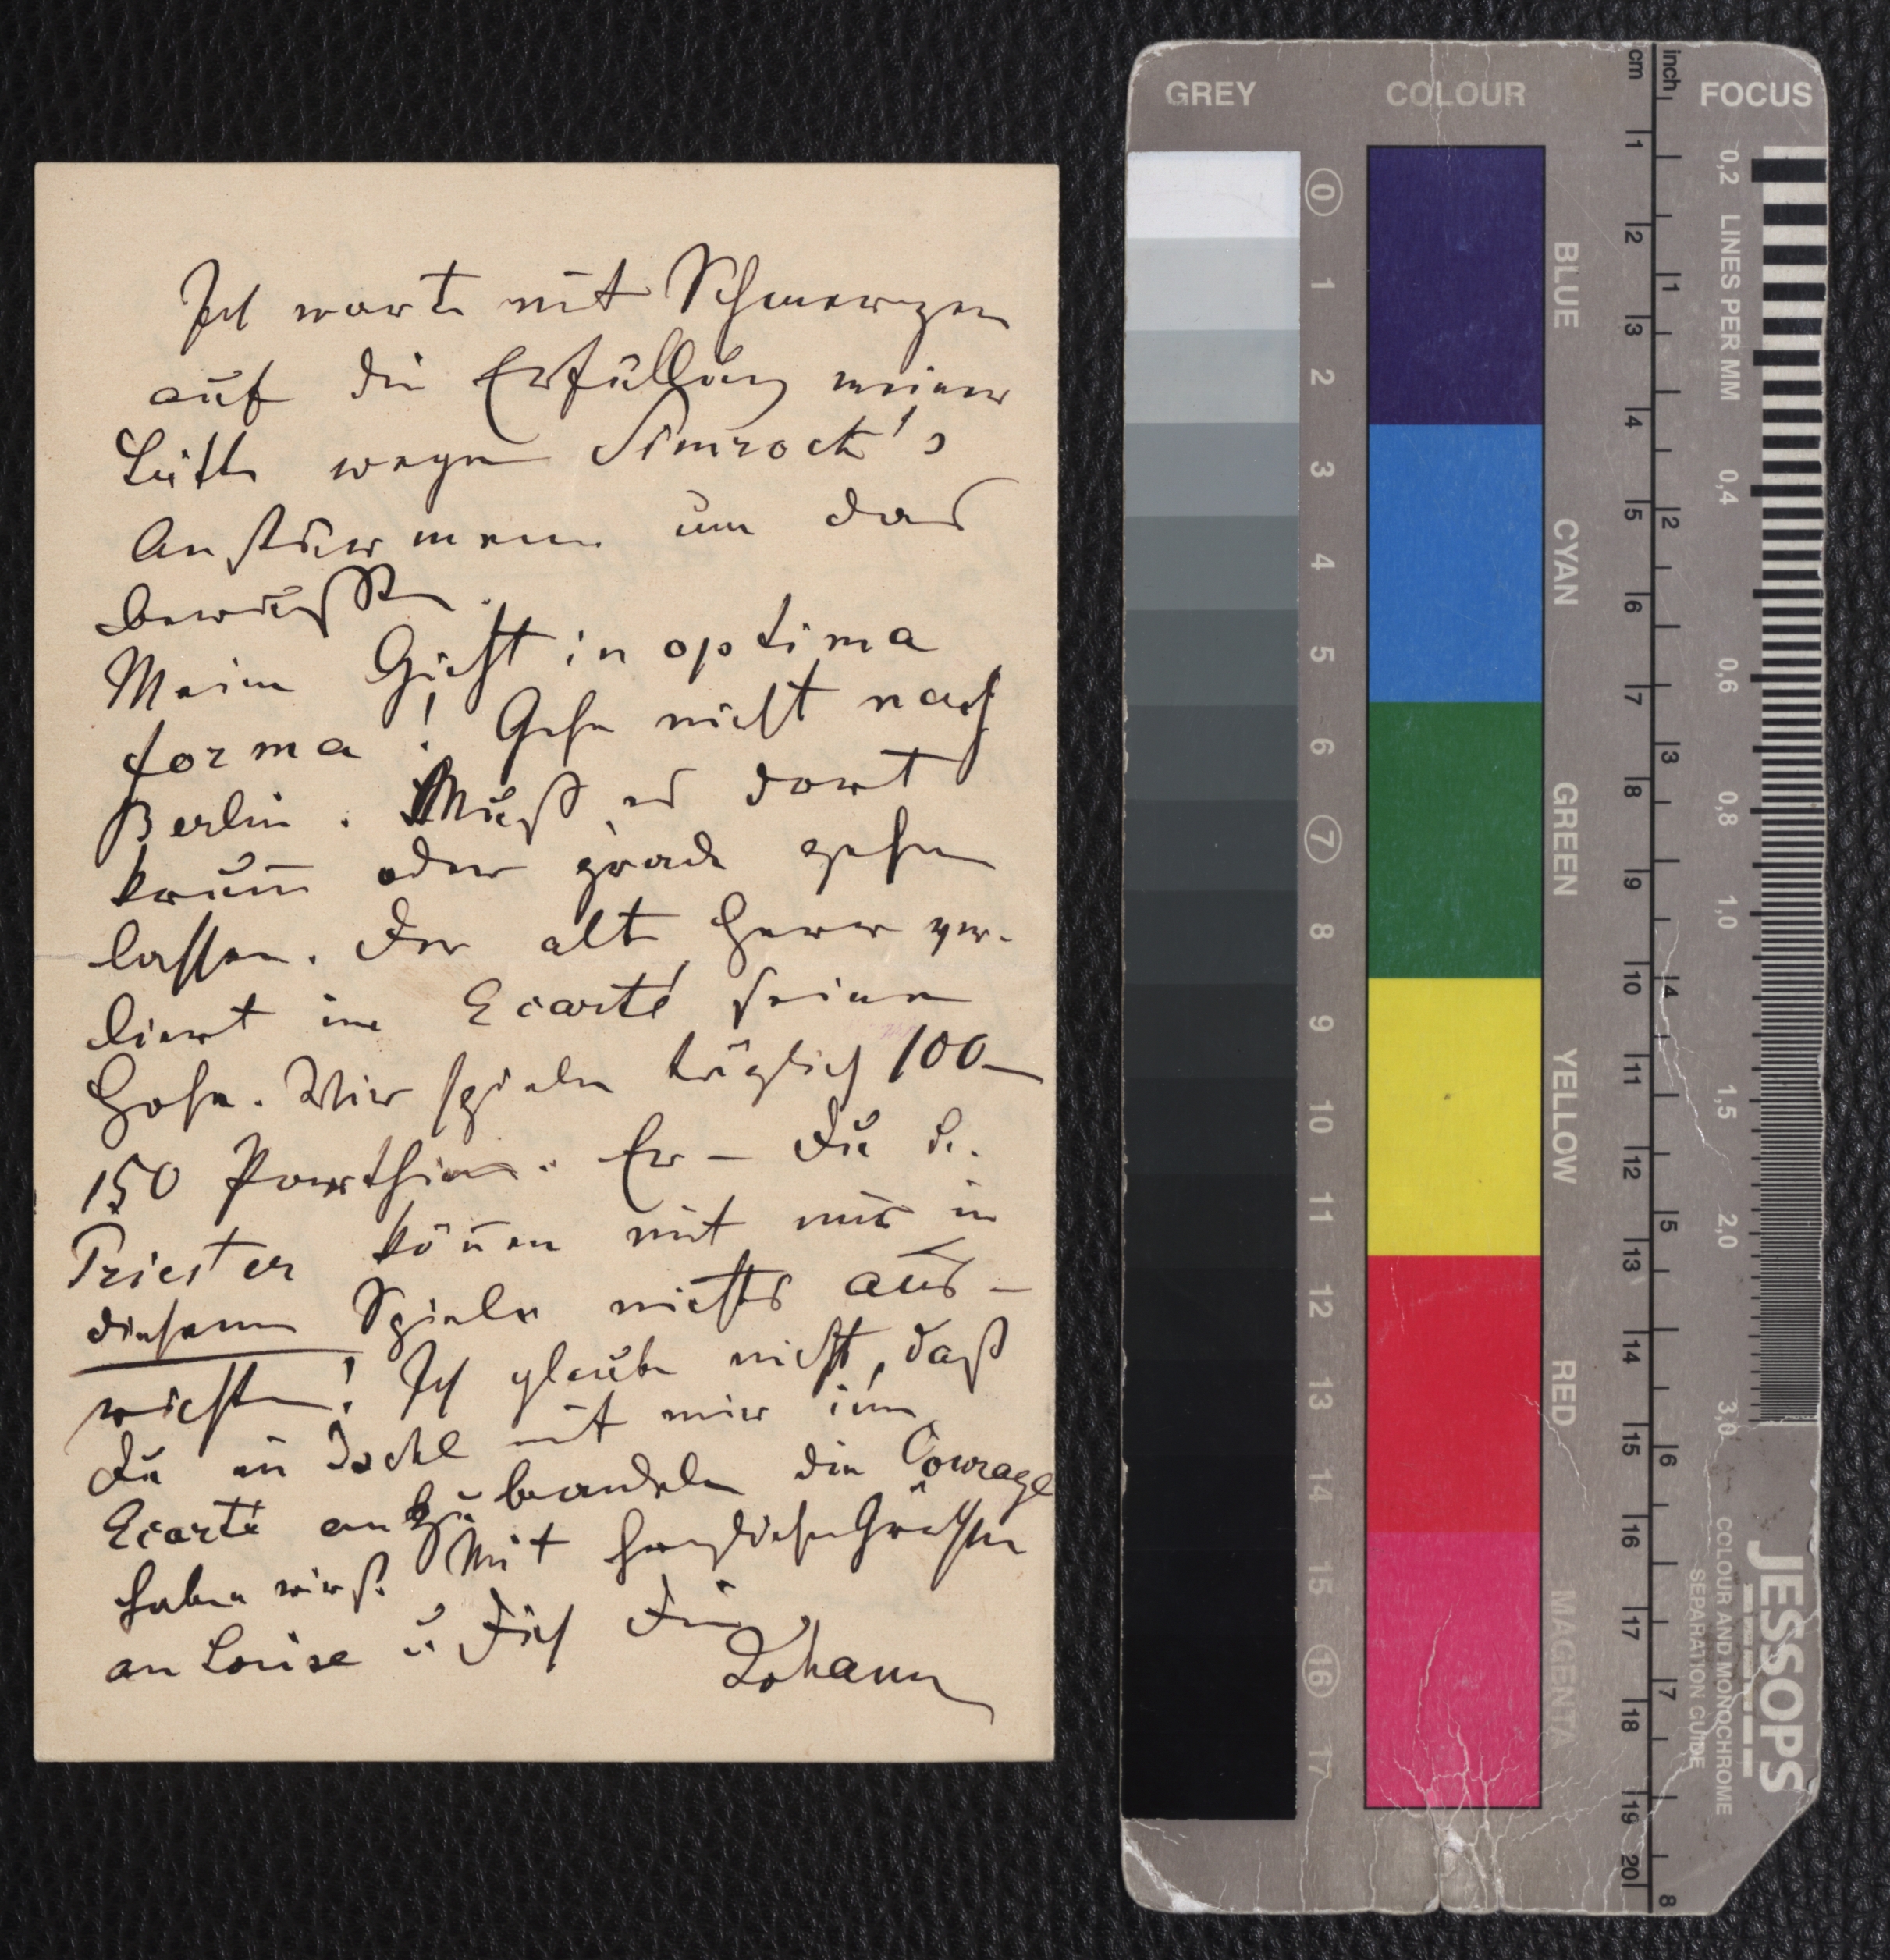 Ich warte mit Schmerzen
auf die Erfüllung meiner
Bitte wegen Simrock's
Anstürmen um das
bewußte.
Meine Gicht in optima
forma! Gehe nicht nach
Berlin. Muß es dort
krum̅ oder grade gehen
lassen. Der alte Herr ver-
liert im Ecarté seine
Hose. Wir spielen täglich 100–
150 Parthien. Er – Du u.
Priester kön̅en mit mir in
diesem Spiele nichts aus-
richten! Ich glaube nicht, daß
Du in Ischl mit mir im
Ecarté anzubandeln die Courage
haben wirst. Mit herzlichen Grüssen
an Louise u Dich Dein
Johann
GREY
COLOUR
FOCUS
cm
inch
0 1 2 3 4 5 6 7 8 9 10 11 12 13 14 15 16 17
BLUE
CYAN
GREEN
YELLOW
RED
MAGENTA
1 2 3 4 5 6 7 8 9 10 11 12 13 14 15 16 17 18 19 20
1 2 3 4 5 6 7 8
0,2 LINES PER MM 0,4 0,6 0,8 1,0 1,5 2,0 3,0
JESSOPS
COLOUR AND MONOCHROME
SEPARATION GUIDE